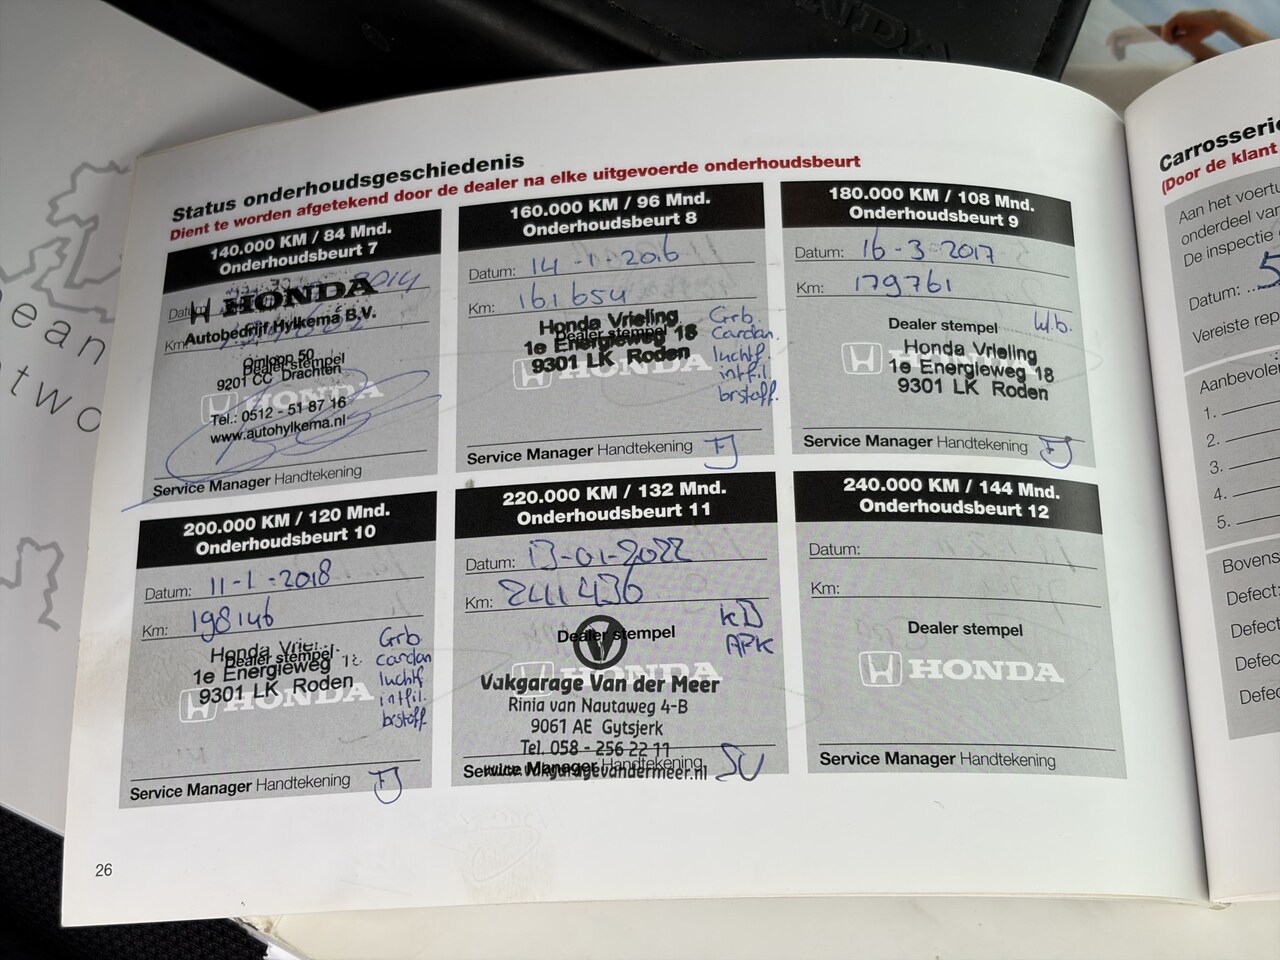 Status onderhoudsgeschiedenis
Dient te worden afgetekend door de dealer na elke uitgevoerde onderhoudsbeurt
140.000 KM / 84 Mnd.
Onderhoudsbeurt 7
2014
HONDA
Autobedrijf Hylkema B.V.
Km:
Omloop 50
Dealer stempel
9201 CC Drachten
HONDA
Tel.: 0512 - 51 87 16
www.autohylkema.nl
Service Manager Handtekening
160.000 KM / 96 Mnd.
Onderhoudsbeurt 8
Datum: 14-1-2016
Km: 161654
Honda Vrieling
Dealer stempel
1e Energieweg 18
9301 LK Roden
HONDA
Grb.
Cardan.
luchtf.
intfil.
brstoff.
Service Manager Handtekening FJ
180.000 KM / 108 Mnd.
Onderhoudsbeurt 9
Datum: 16-3-2017
Km: 179761
Dealer stempel
Honda Vrieling
1e Energieweg 18
9301 LK Roden
HONDA
Service Manager Handtekening FJ
200.000 KM / 120 Mnd.
Onderhoudsbeurt 10
Datum: 11-1-2018
Km: 198146
Honda Vriel
Dealer stempel
1e Energieweg 18
9301 LK Roden
HONDA
Grb
cardan
luchtf.
intfil.
brstoff.
Service Manager Handtekening FJ
220.000 KM / 132 Mnd.
Onderhoudsbeurt 11
Datum: 13-01-2022
Km: 241430
KB
APK
Dealer stempel
HONDA
Vakgarage Van der Meer
Rinia van Nautaweg 4-B
9061 AE Gytsjerk
Tel. 058 - 256 22 11
Service Manager Handtekening
www.vakgaragevandermeer.nl
240.000 KM / 144 Mnd.
Onderhoudsbeurt 12
Datum:
Km:
Dealer stempel
HONDA
Service Manager Handtekening
26
Carrosserie
(Door de klant
Aan het voertu
onderdeel van
De inspectie
Datum: ..5
Vereiste rep
Aanbevolen
1.
2.
3.
4.
5.
Bovens
Defect:
Defect
Defec
Defe